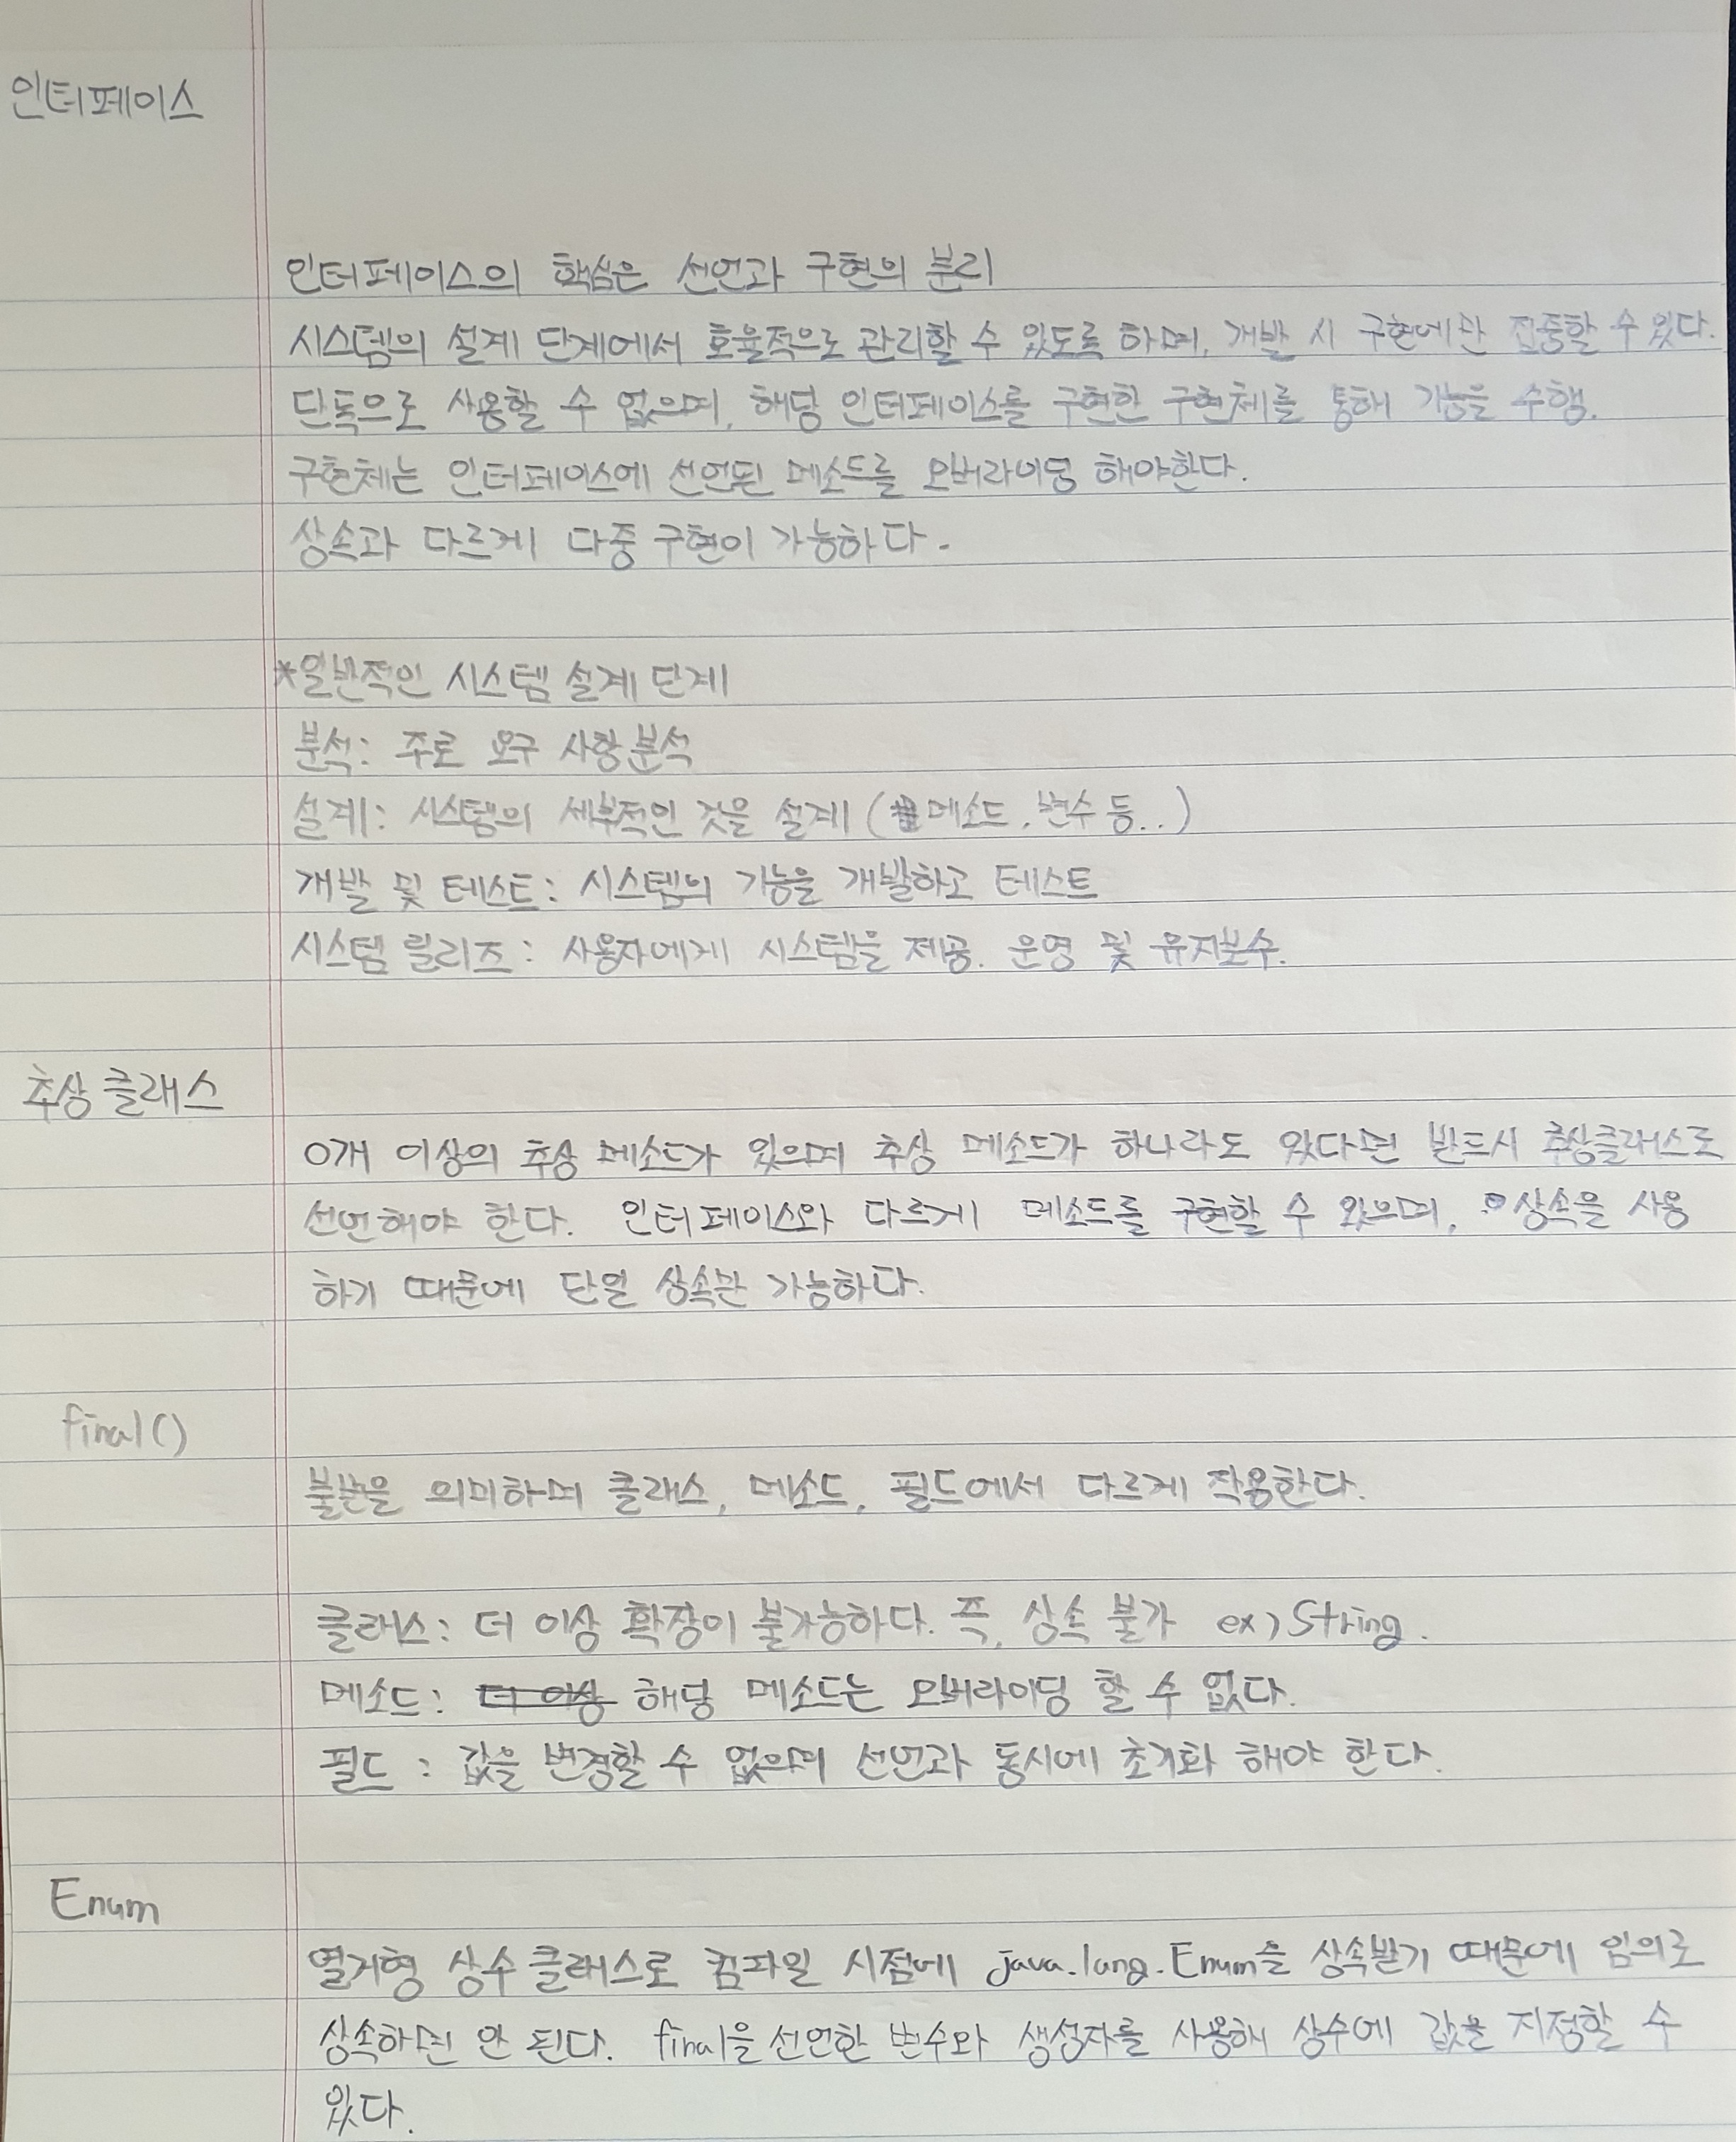 인터페이스
인터페이스의 핵심은 선언과 구현의 분리
시스템의 설계 단계에서 효율적으로 관리할 수 있도록 하며, 개발 시 구현에만 집중할 수 있다.
단독으로 사용할 수 없으며, 해당 인터페이스를 구현한 구현체를 통해 기능을 수행.
구현체는 인터페이스에 선언된 메소드를 오버라이딩 해야한다.
상속과 다르게 다중 구현이 가능하다.
*일반적인 시스템 설계 단계
분석: 주로 요구 사항 분석
설계: 시스템의 세부적인 것을 설계 (메소드, 변수 등..)
개발 및 테스트: 시스템의 기능을 개발하고 테스트
시스템 릴리즈: 사용자에게 시스템을 제공. 운영 및 유지보수.
추상 클래스
0개 이상의 추상 메소드가 있으며 추상 메소드가 하나라도 있다면 반드시 추상클래스로
선언해야 한다. 인터페이스와 다르게 메소드를 구현할 수 있으며, 상속을 사용
하기 때문에 단일 상속만 가능하다.
final()
불변을 의미하며 클래스, 메소드, 필드에서 다르게 작용한다.
클래스: 더 이상 확장이 불가능하다. 즉, 상속 불가 ex) String.
메소드: 더 이상 해당 메소드는 오버라이딩 할 수 없다.
필드: 값을 변경할 수 없으며 선언과 동시에 초기화 해야 한다.
Enum
열거형 상수 클래스로 컴파일 시점에 java.lang.Enum을 상속받기 때문에 임의로
상속하면 안 된다. final을 선언한 변수와 생성자를 사용해 상수에 값을 지정할 수
있다.